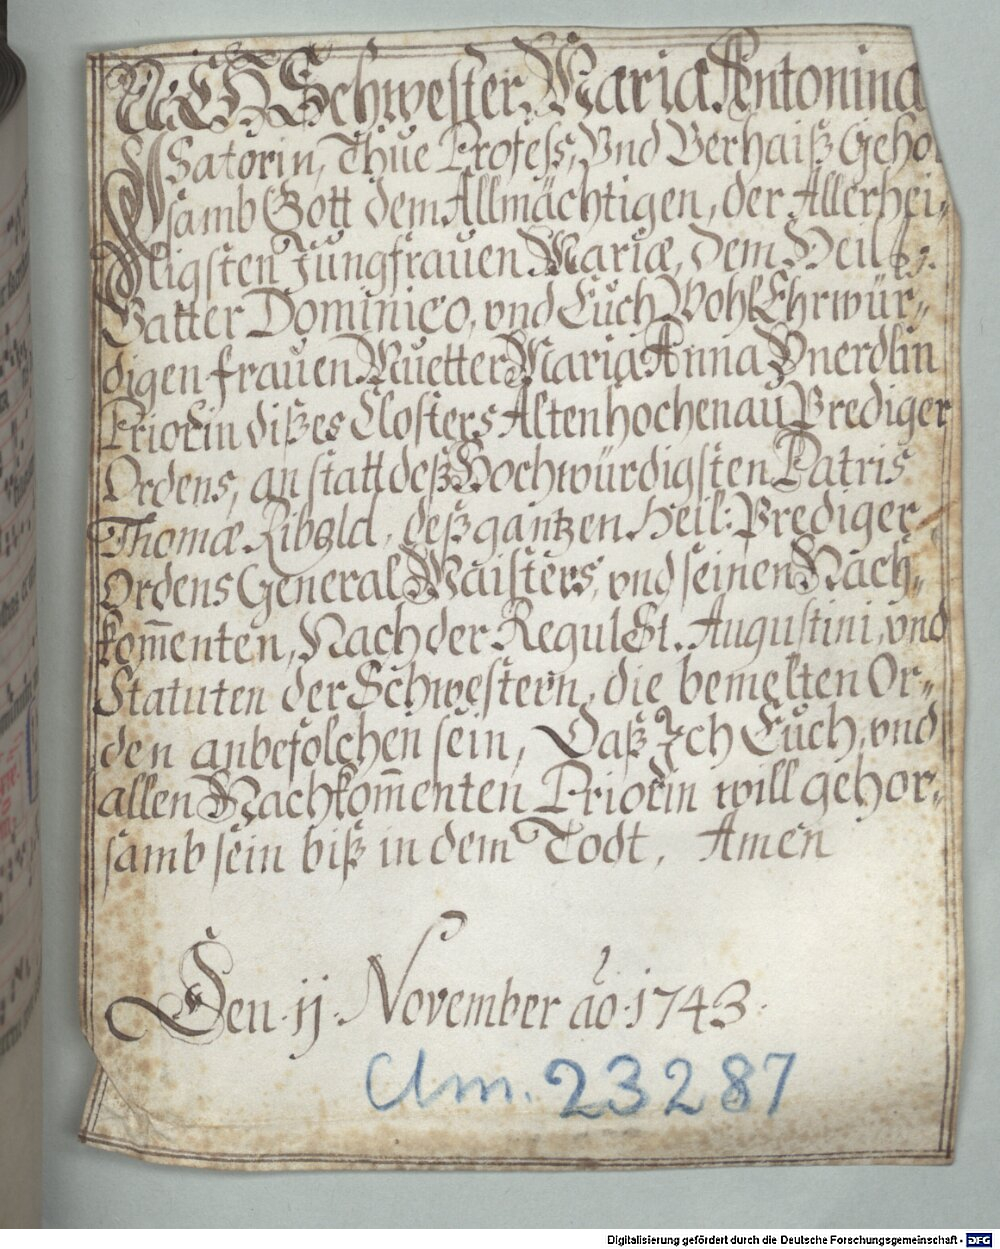 ICH Schwester Maria Antonina
Satorin, Thue Profeſs, Vnd Verhaiß Gehor
ſamb Gott dem Allmächtigen, der Allerhei„
ligſten Jungfrauen Mariæ, dem Heil:
Vatter Dominico, vnd Euch WohlEhrwür„
digen frauen Muetter Maria Anna Vnerdlin
Priorin dißes Cloſters Altenhochenau Prediger
Ordens, an ſtatt deß Hochwürdigſten Patris
Thomæ Ribold, deß gantzen Heil: Prediger
Ordens General Maiſters, vnd ſeinen Nach„
kom̄enten, Nach der Regul St. Auguſtini, vnd
Statuten der Schweſtern, die bemelten Or„
den anbefolchen ſein, Daß Jch Euch, vnd
allen Nachkom̄enten Priorin will gehor„
ſamb ſein biß in dem Todt. Amen
Den 11 November ao 1743.
Clm. 23287
Digitalisierung gefördert durch die Deutsche Forschungsgemeinschaft - DFG